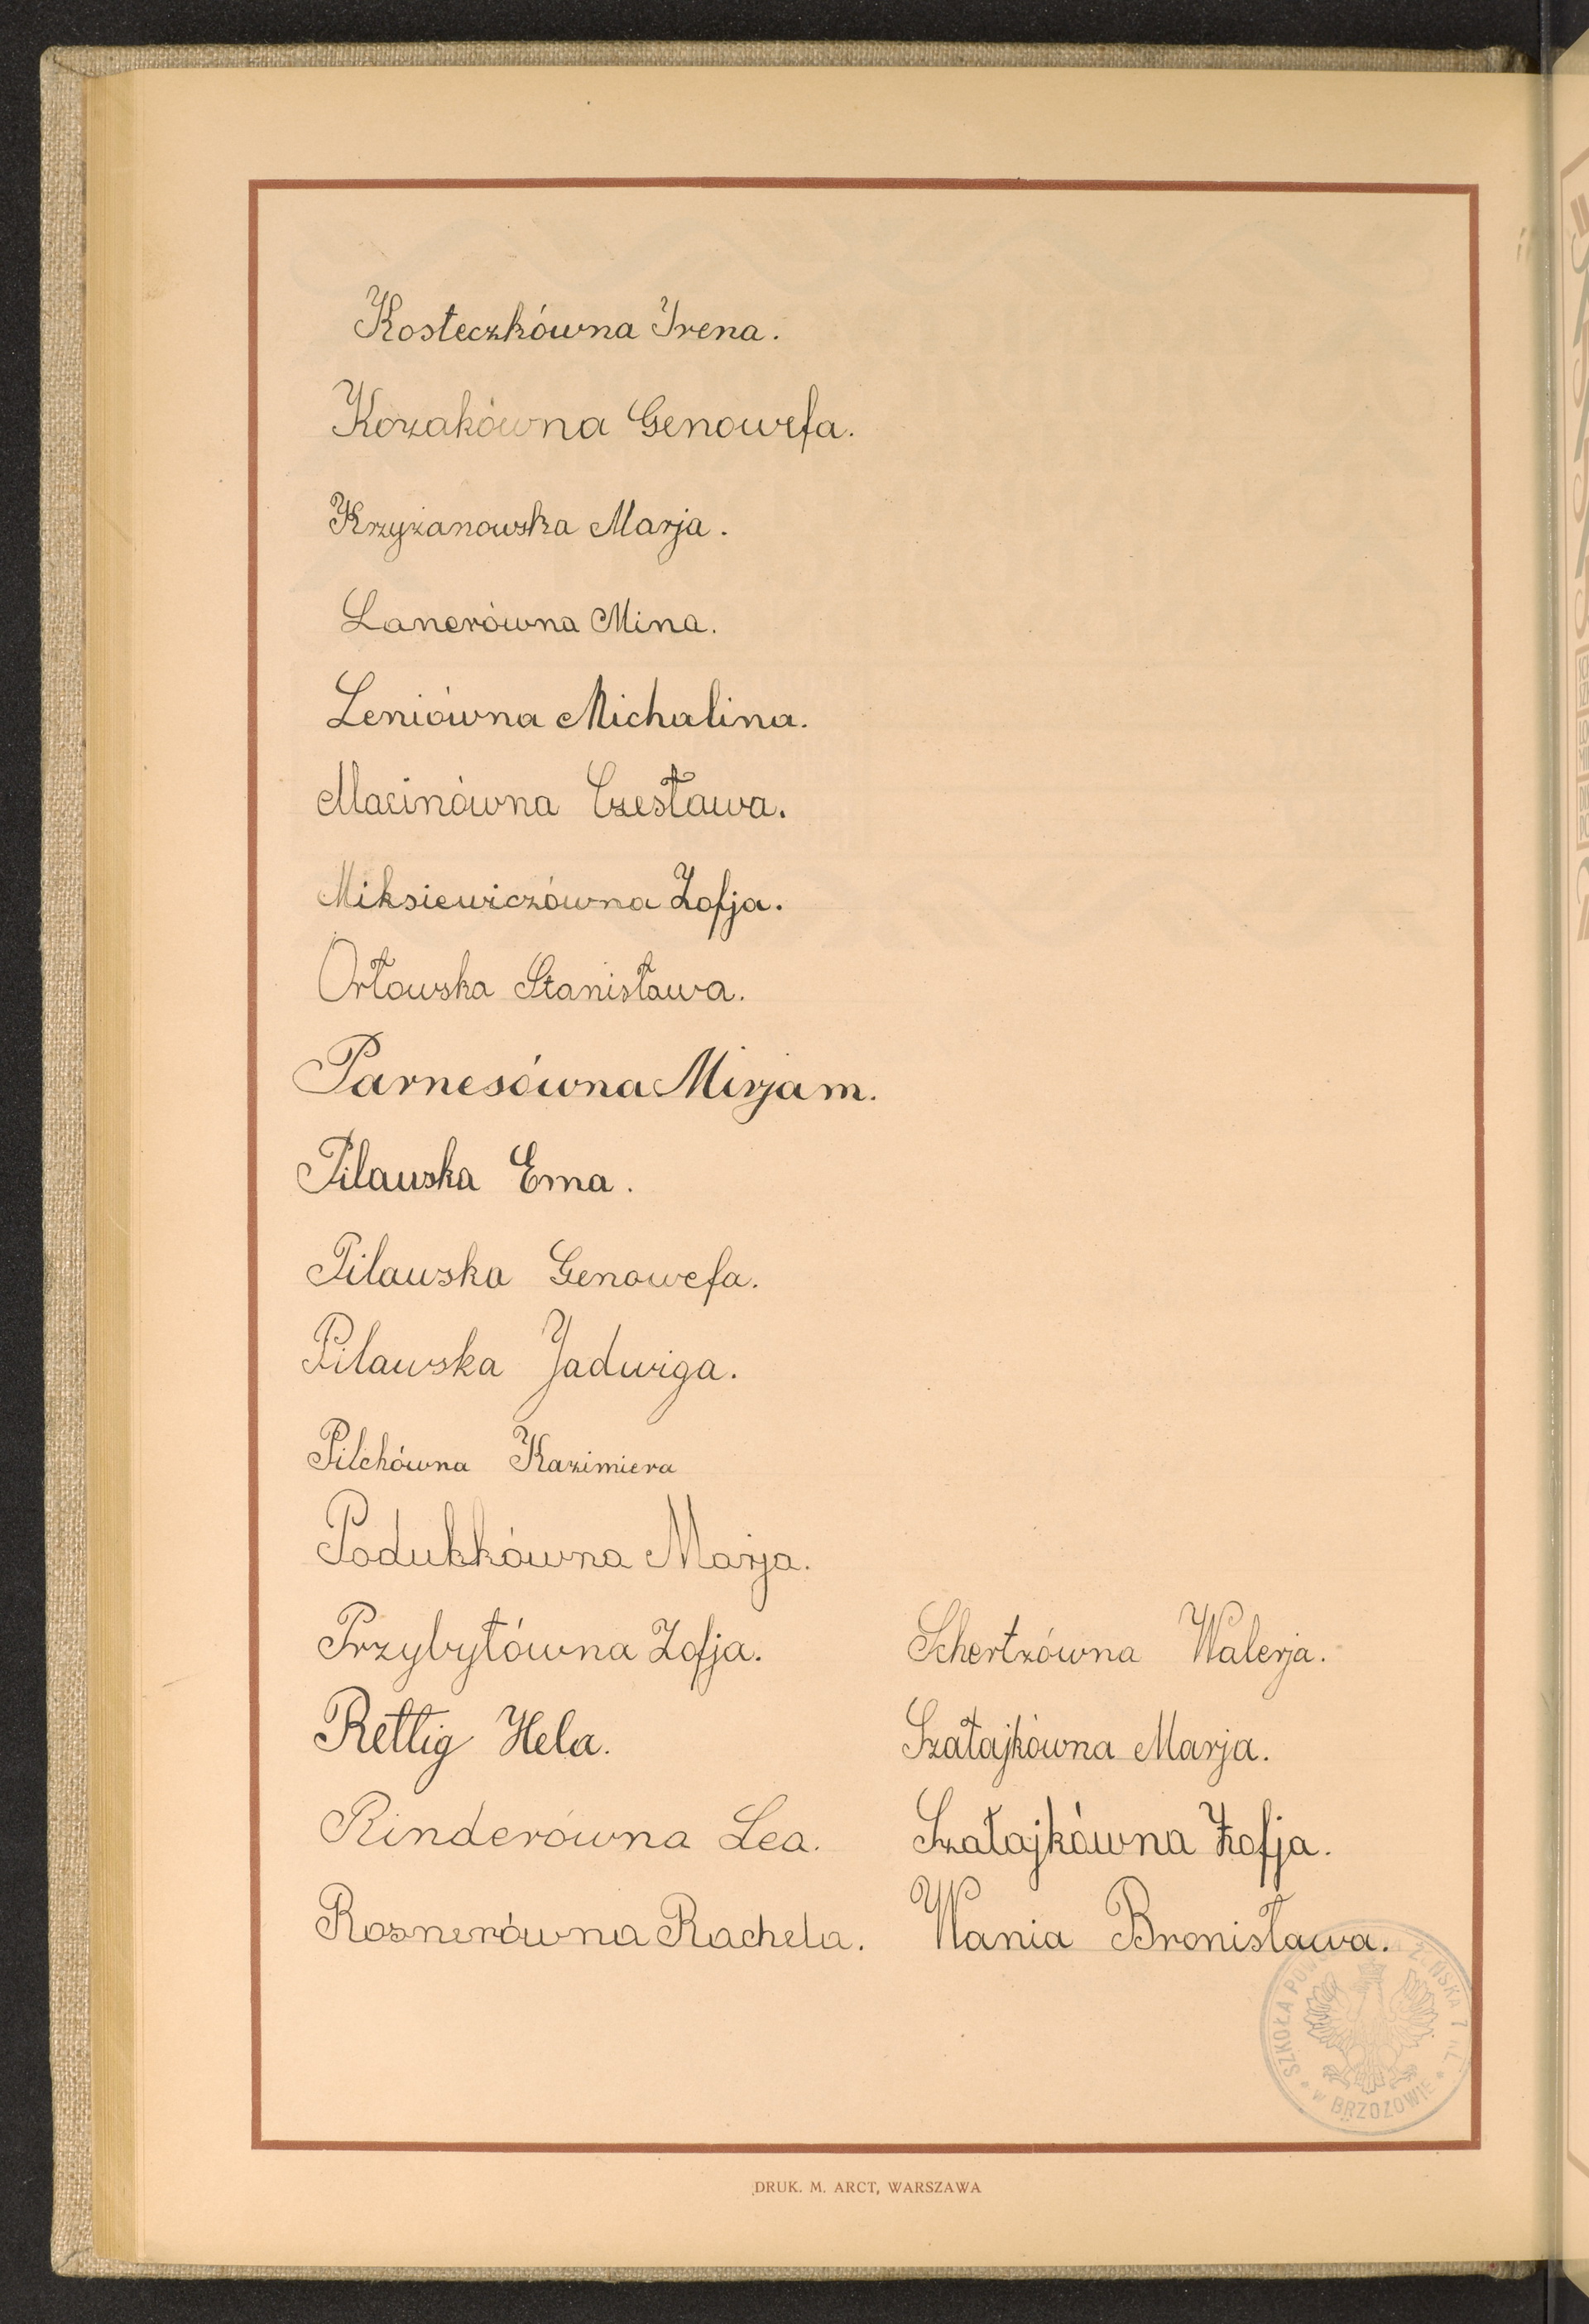 Kosteczkówna Irena.
Kozakówna Genowefa.
Krzyżanowska Marja.
Lanerówna Mina.
Leniówna Michalina.
Macinówna Czesława.
Miksiewiczówna Zofja.
Orłowska Stanisława.
Parnesówna Mirjam.
Pilawska Ema.
Pilawska Genowefa.
Pilawska Jadwiga.
Pilchówna Kazimiera
Podukkówna Marja.
Przybyłówna Zofja.
Rettig Hela.
Rinderówna Lea.
Rosnerówna Rachela.
Schertzówna Walerja.
Szałajkówna Marja.
Szałajkówna Zofja.
Wania Bronisława.
SZKOŁA ŻEŃSKA 7 KL.
w BRZOZOWIE
DRUK. M. ARCT, WARSZAWA